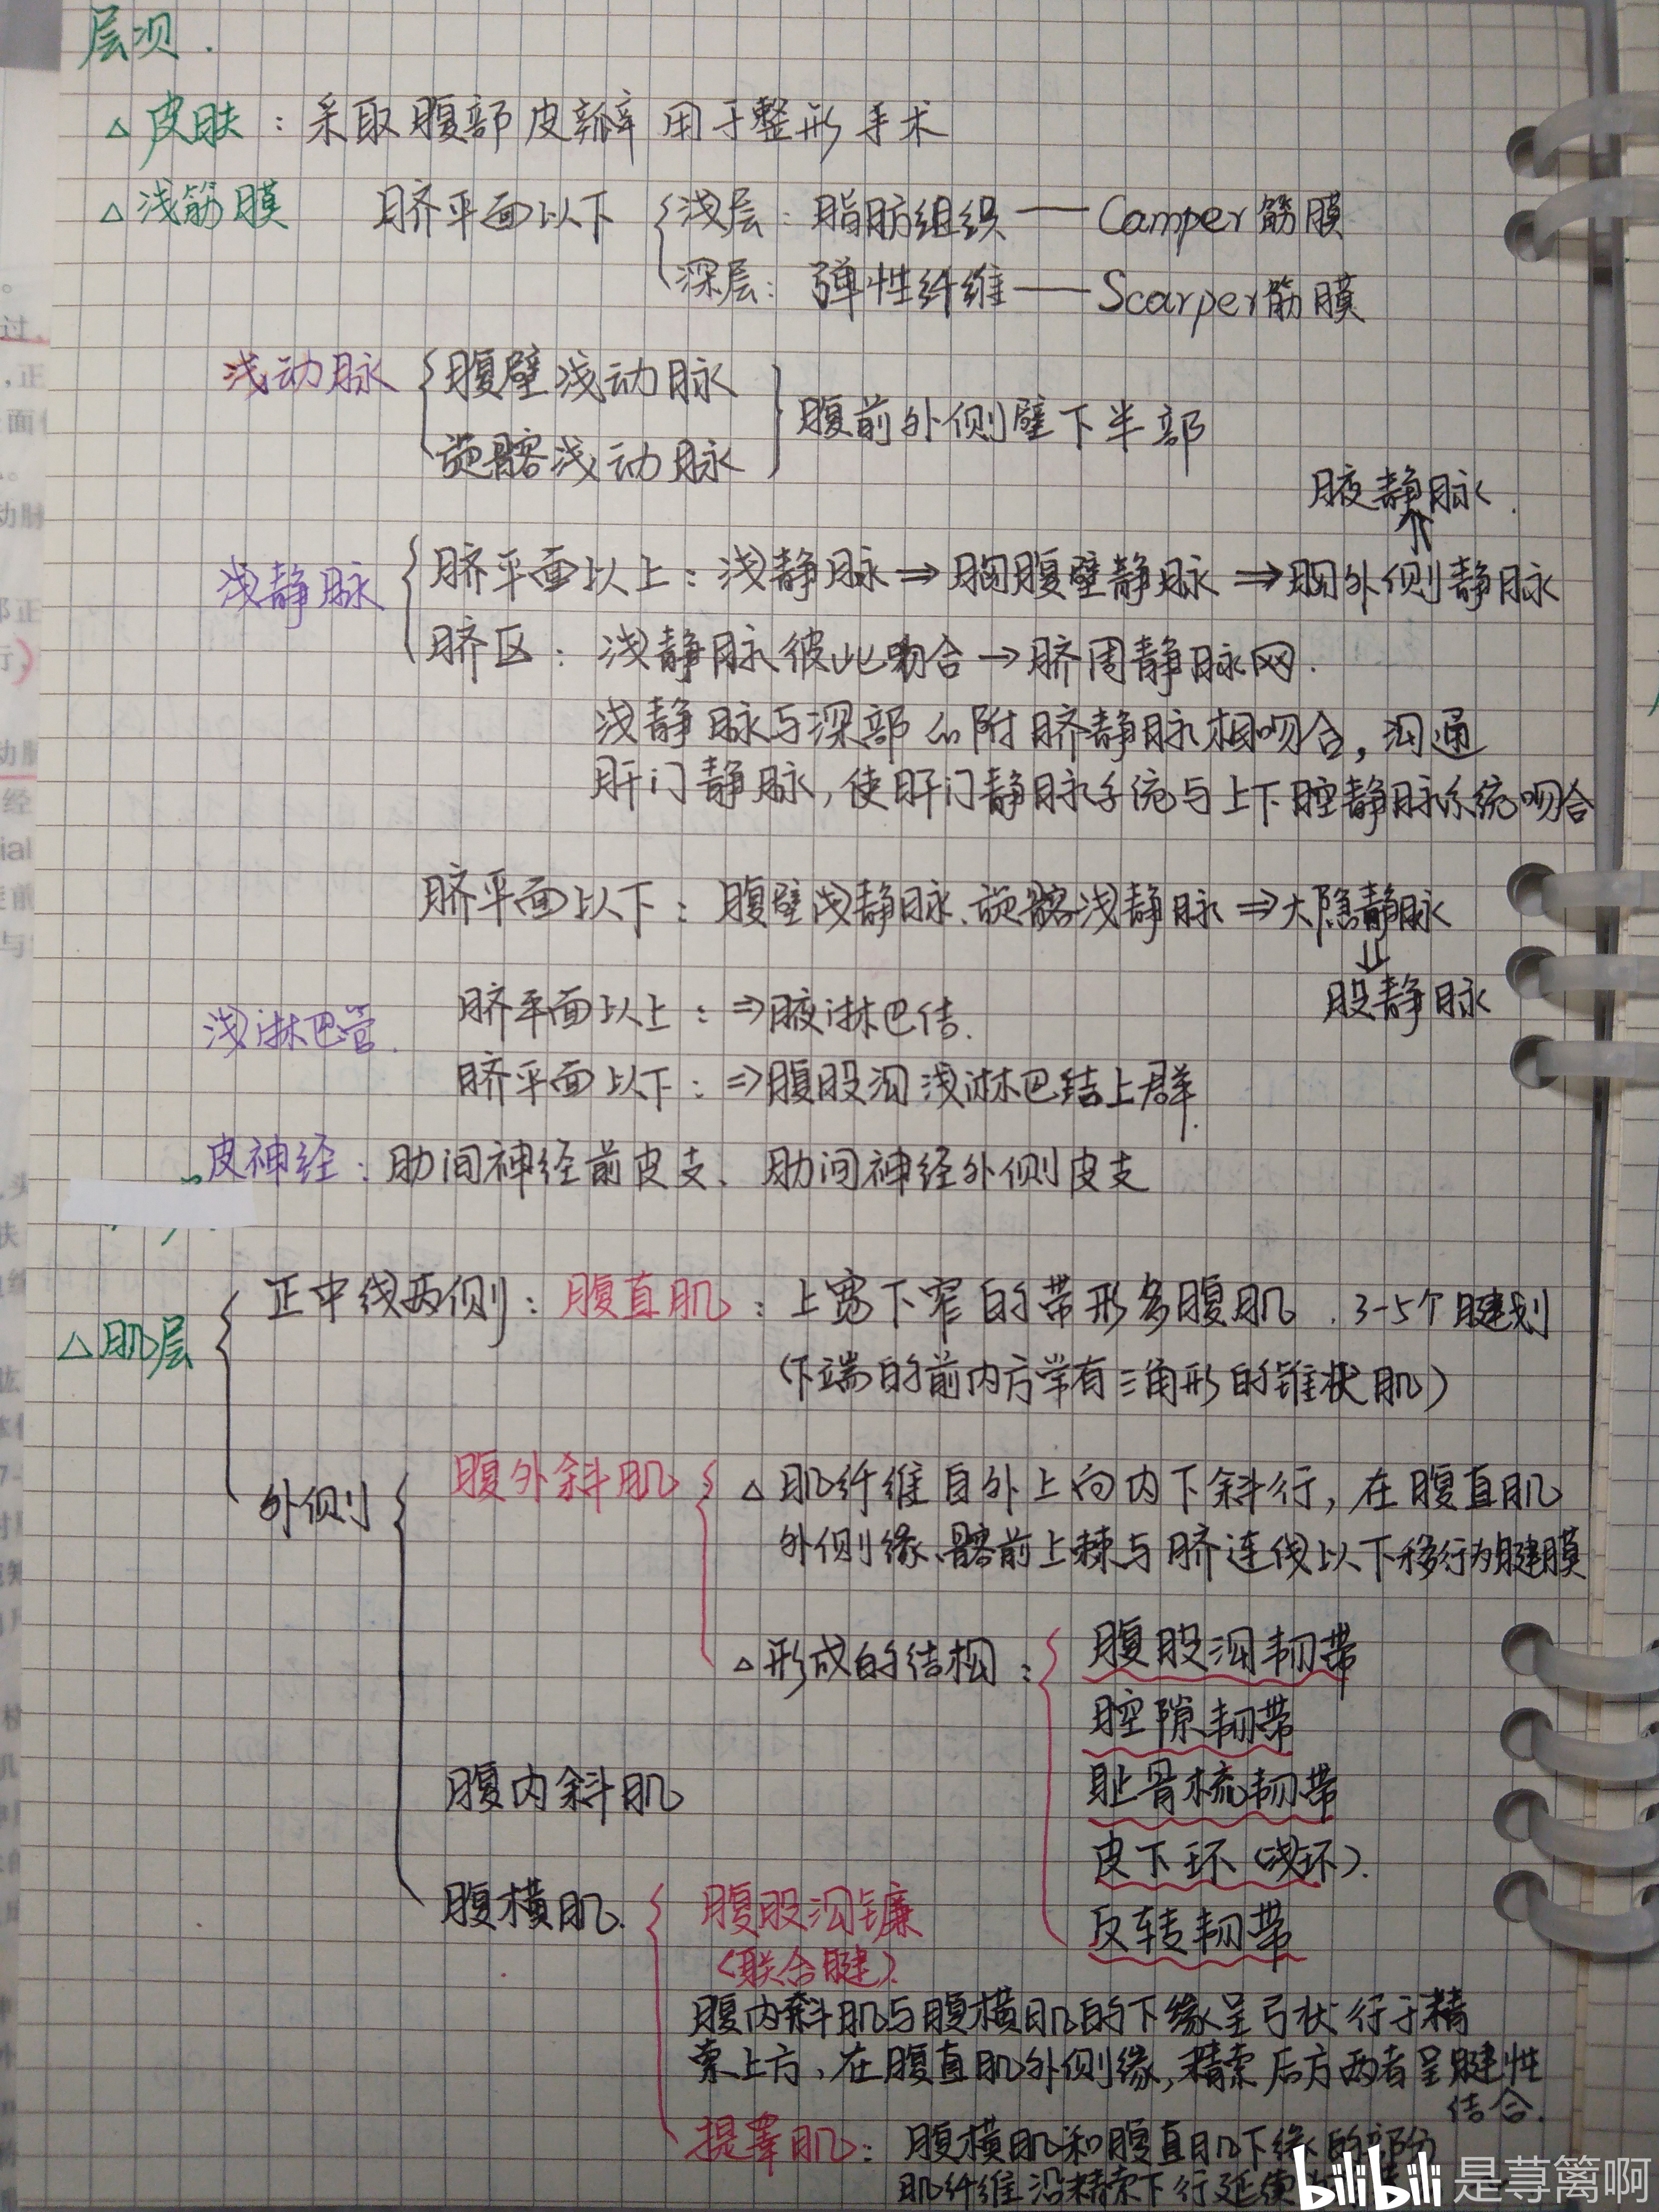 层次.
△皮肤：采取腹部皮瓣用于整形手术
△浅筋膜 脐平面以下 浅层：脂肪组织——Camper筋膜
深层：弹性纤维——Scarper筋膜
浅动脉 腹壁浅动脉
旋髂浅动脉
腹前外侧壁下半部
腋静脉.
⇑
浅静脉 脐平面以上：浅静脉⇒胸腹壁静脉⇒胸外侧静脉
脐区：浅静脉彼此吻合→脐周静脉网.
浅静脉与深部的附脐静脉相吻合，沟通
肝门静脉，使肝门静脉系统与上下腔静脉系统吻合
脐平面以下：腹壁浅静脉、旋髂浅静脉⇒大隐静脉
⇓
股静脉
浅淋巴管. 脐平面以上：⇒腋淋巴结.
脐平面以下：⇒腹股沟浅淋巴结上群.
皮神经：肋间神经前皮支、肋间神经外侧皮支
△肌层
正中线两侧：腹直肌：上宽下窄的带形多腹肌.3-5个腱划
(下端的前内方常有三角形的锥状肌)
外侧
腹外斜肌 △肌纤维自外上向内下斜行，在腹直肌
外侧缘、髂前上棘与脐连线以下移行为腱膜
△形成的结构：腹股沟韧带
腔隙韧带
耻骨梳韧带
皮下环(浅环).
反转韧带
腹内斜肌
腹横肌. 腹股沟镰
(联合腱)
腹内斜肌与腹横肌的下缘呈弓状行于精
索上方，在腹直肌外侧缘，精索后方两者呈腱性
结合.
提睾肌：腹横肌和腹直肌下缘的部分
肌纤维沿精索下行延续
bilibili 是荨篱啊